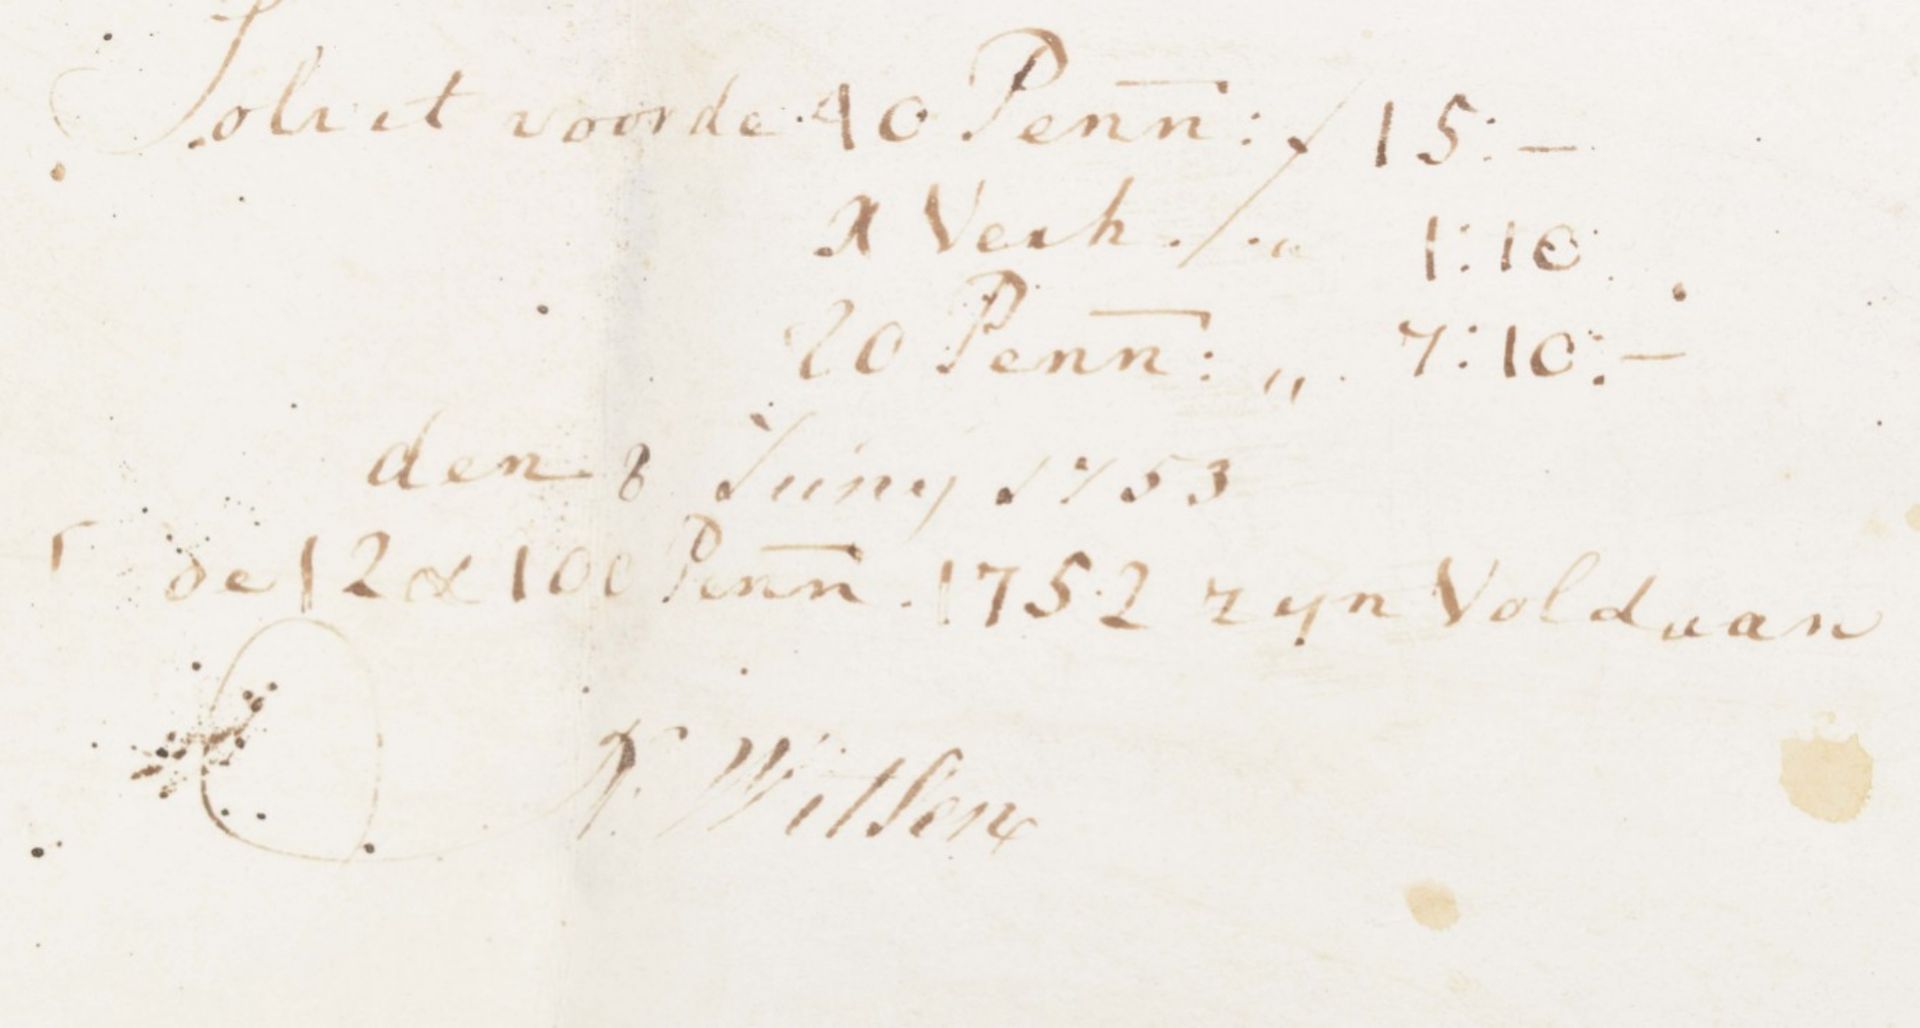 Solvit voorde 40 Penn: ƒ 15:-
X Verh. 1:10
20 Penn: „ 7:10:-
den 8 Juny 1753
de 12 & 100 Penn. 1752 zyn Voldaan
N. Witsen